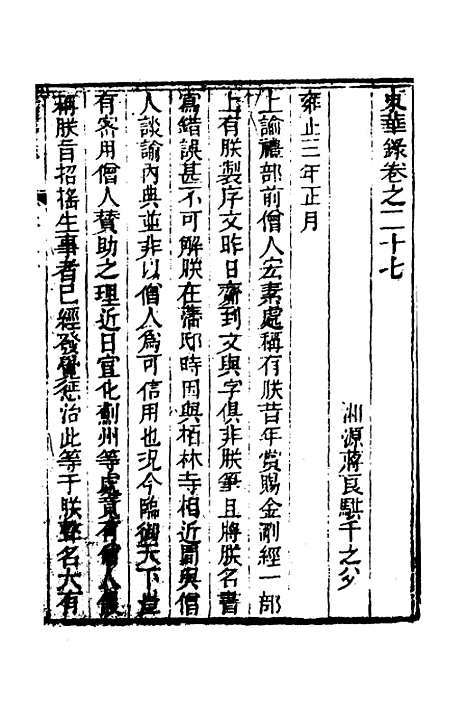 東華錄卷之二十七
湘源蔣良騏千之父
雍正三年正月
上諭禮部前僧人宏素處稱有朕昔年賞賜金剛經一部
上有朕製序文昨日齎到文與字俱非朕筆且將朕名書
寫錯誤甚不可解朕在藩邸時因與柏林寺相近閒與僧
人談論內典並非以僧人為可信用也況今臨御天下豈
有密用僧人贊助之理近日宣化薊州等處竟有僧人
稱朕旨招搖生事者已經發覺懲治此等于朕聲名大有